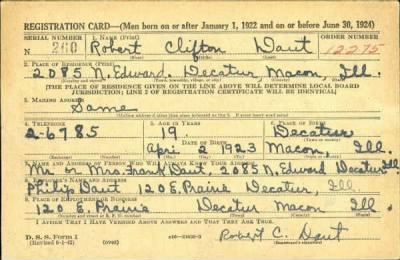 REGISTRATION CARD—(Men born on or after January 1, 1922 and on or before June 30, 1924)
SERIAL NUMBER 1. NAME (Print) ORDER NUMBER
N 260 Robert Clifton Daut 12275
2. PLACE OF RESIDENCE (Print)
2085 N. Edward, Decatur, Macon, Ill.
[THE PLACE OF RESIDENCE GIVEN ON THE LINE ABOVE WILL DETERMINE LOCAL BOARD
JURISDICTION; LINE 2 OF REGISTRATION CERTIFICATE WILL BE IDENTICAL]
3. MAILING ADDRESS
Same
4. TELEPHONE 5. AGE IN YEARS 6. PLACE OF BIRTH
2-6785 19 Decatur
DATE OF BIRTH
Apri 2 1923 Macon, Ill.
7. NAME AND ADDRESS OF PERSON WHO WILL ALWAYS KNOW YOUR ADDRESS
Mr or Mrs. Frank Daut, 2085 N, Edward Decatur Ill
8. EMPLOYER'S NAME AND ADDRESS
Philip Daut 120 E. Prairie Decatur, Ill.
9. PLACE OF EMPLOYMENT OR BUSINESS
120 E. Prairie Decatur Macon Ill.
I AFFIRM THAT I HAVE VERIFIED ABOVE ANSWERS AND THAT THEY ARE TRUE.
D. S. S. Form 1
(Revised 6-1-42) (over) Robert C. Daut